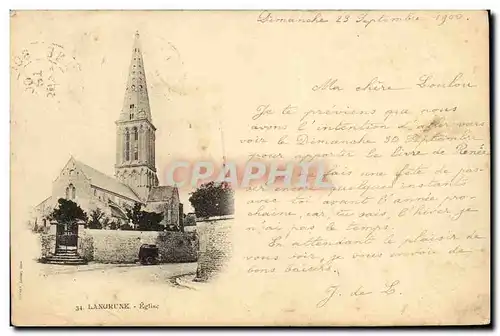 Dimanche 23 Septembre 1900.
Ma chère Loulou
Je te préviens que nous
avons l'intention d'aller vous
voir le Dimanche 30 Septembre
pour apporter le livre de Renée
je me fais une fête de pas-
ser encore quelques instants
avec toi avant l'année pro-
chaine, car, tu sais, l'hiver je
n'ai pas le temps.
En attendant le plaisir de
vous voir, je vous envoie de
bons baisers.
J. de L.
CPARAMA.COM
34. LANGRUNE. - Église